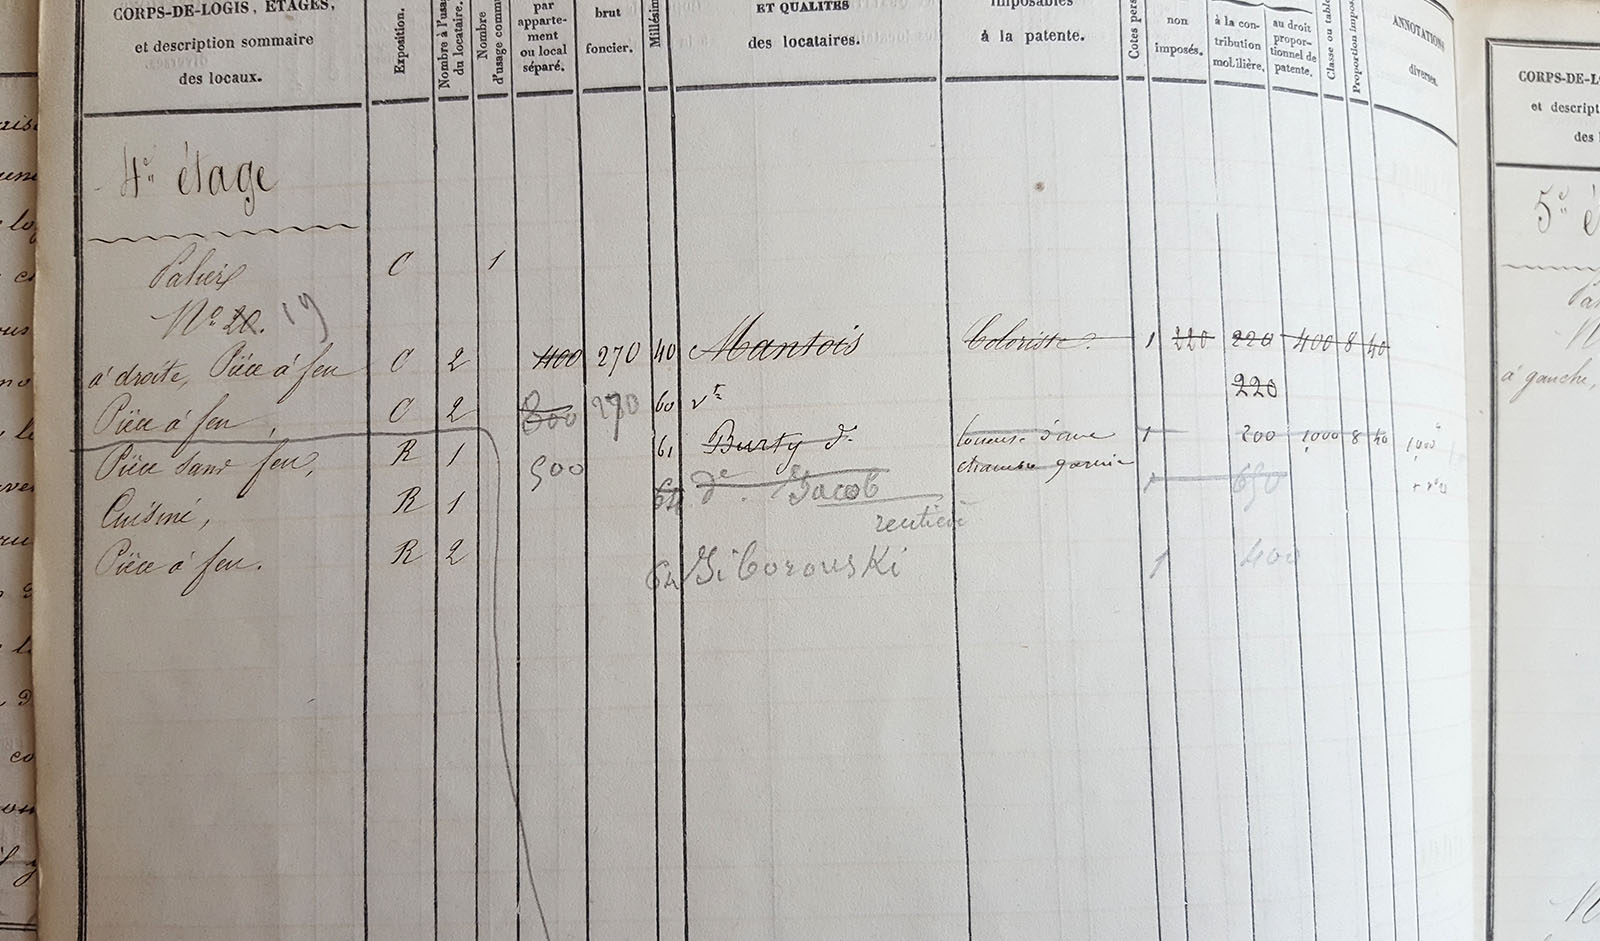 CORPS-DE-LOGIS, ÉTAGES,
et description sommaire
des locaux.
Exposition.
Nombre à l'usa
du locataire.
Nombre
d'usage comm
par
apparte-
ment
ou local
séparé.
brut
foncier.
Millésim
ET QUALITÉS
des locataires.
imposables
à la patente.
Cotes pers
non
imposés.
à la con-
tribution
mobilière.
au droit
propor-
tionnel de
patente.
Classe ou tabl
Proportion impos
ANNOTATIONS
diverses.
4e étage
Palier C 1
No 20. 19
à droite, Pièce à feu C 2 400 270 40 Mantois Coloriste 1 220 220 400 8 40
220
Pièce à feu, C 2 800 270 60 vt
Pièce sans feu, R 1 500 61 Burty d. loueuse d'une 1 200 1000 8 40
chambre garnie
Cuisine, R 1 64 de. Jacob 1 650
rentière
Pièce à feu. R 2 64 Giborouski 1 400
CORPS-DE-L
et descript
des l
5e é
à gauche,